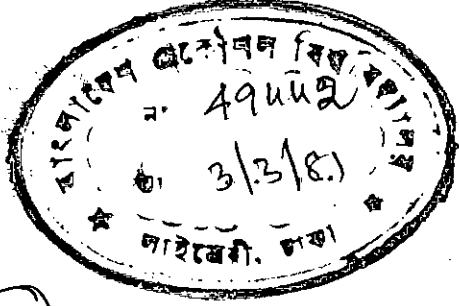 বাংলাদেশ প্রকৌশল বিশ্ববিদ্যালয়
নং
তাং 3/3/81
লাইব্রেরী, ঢাকা